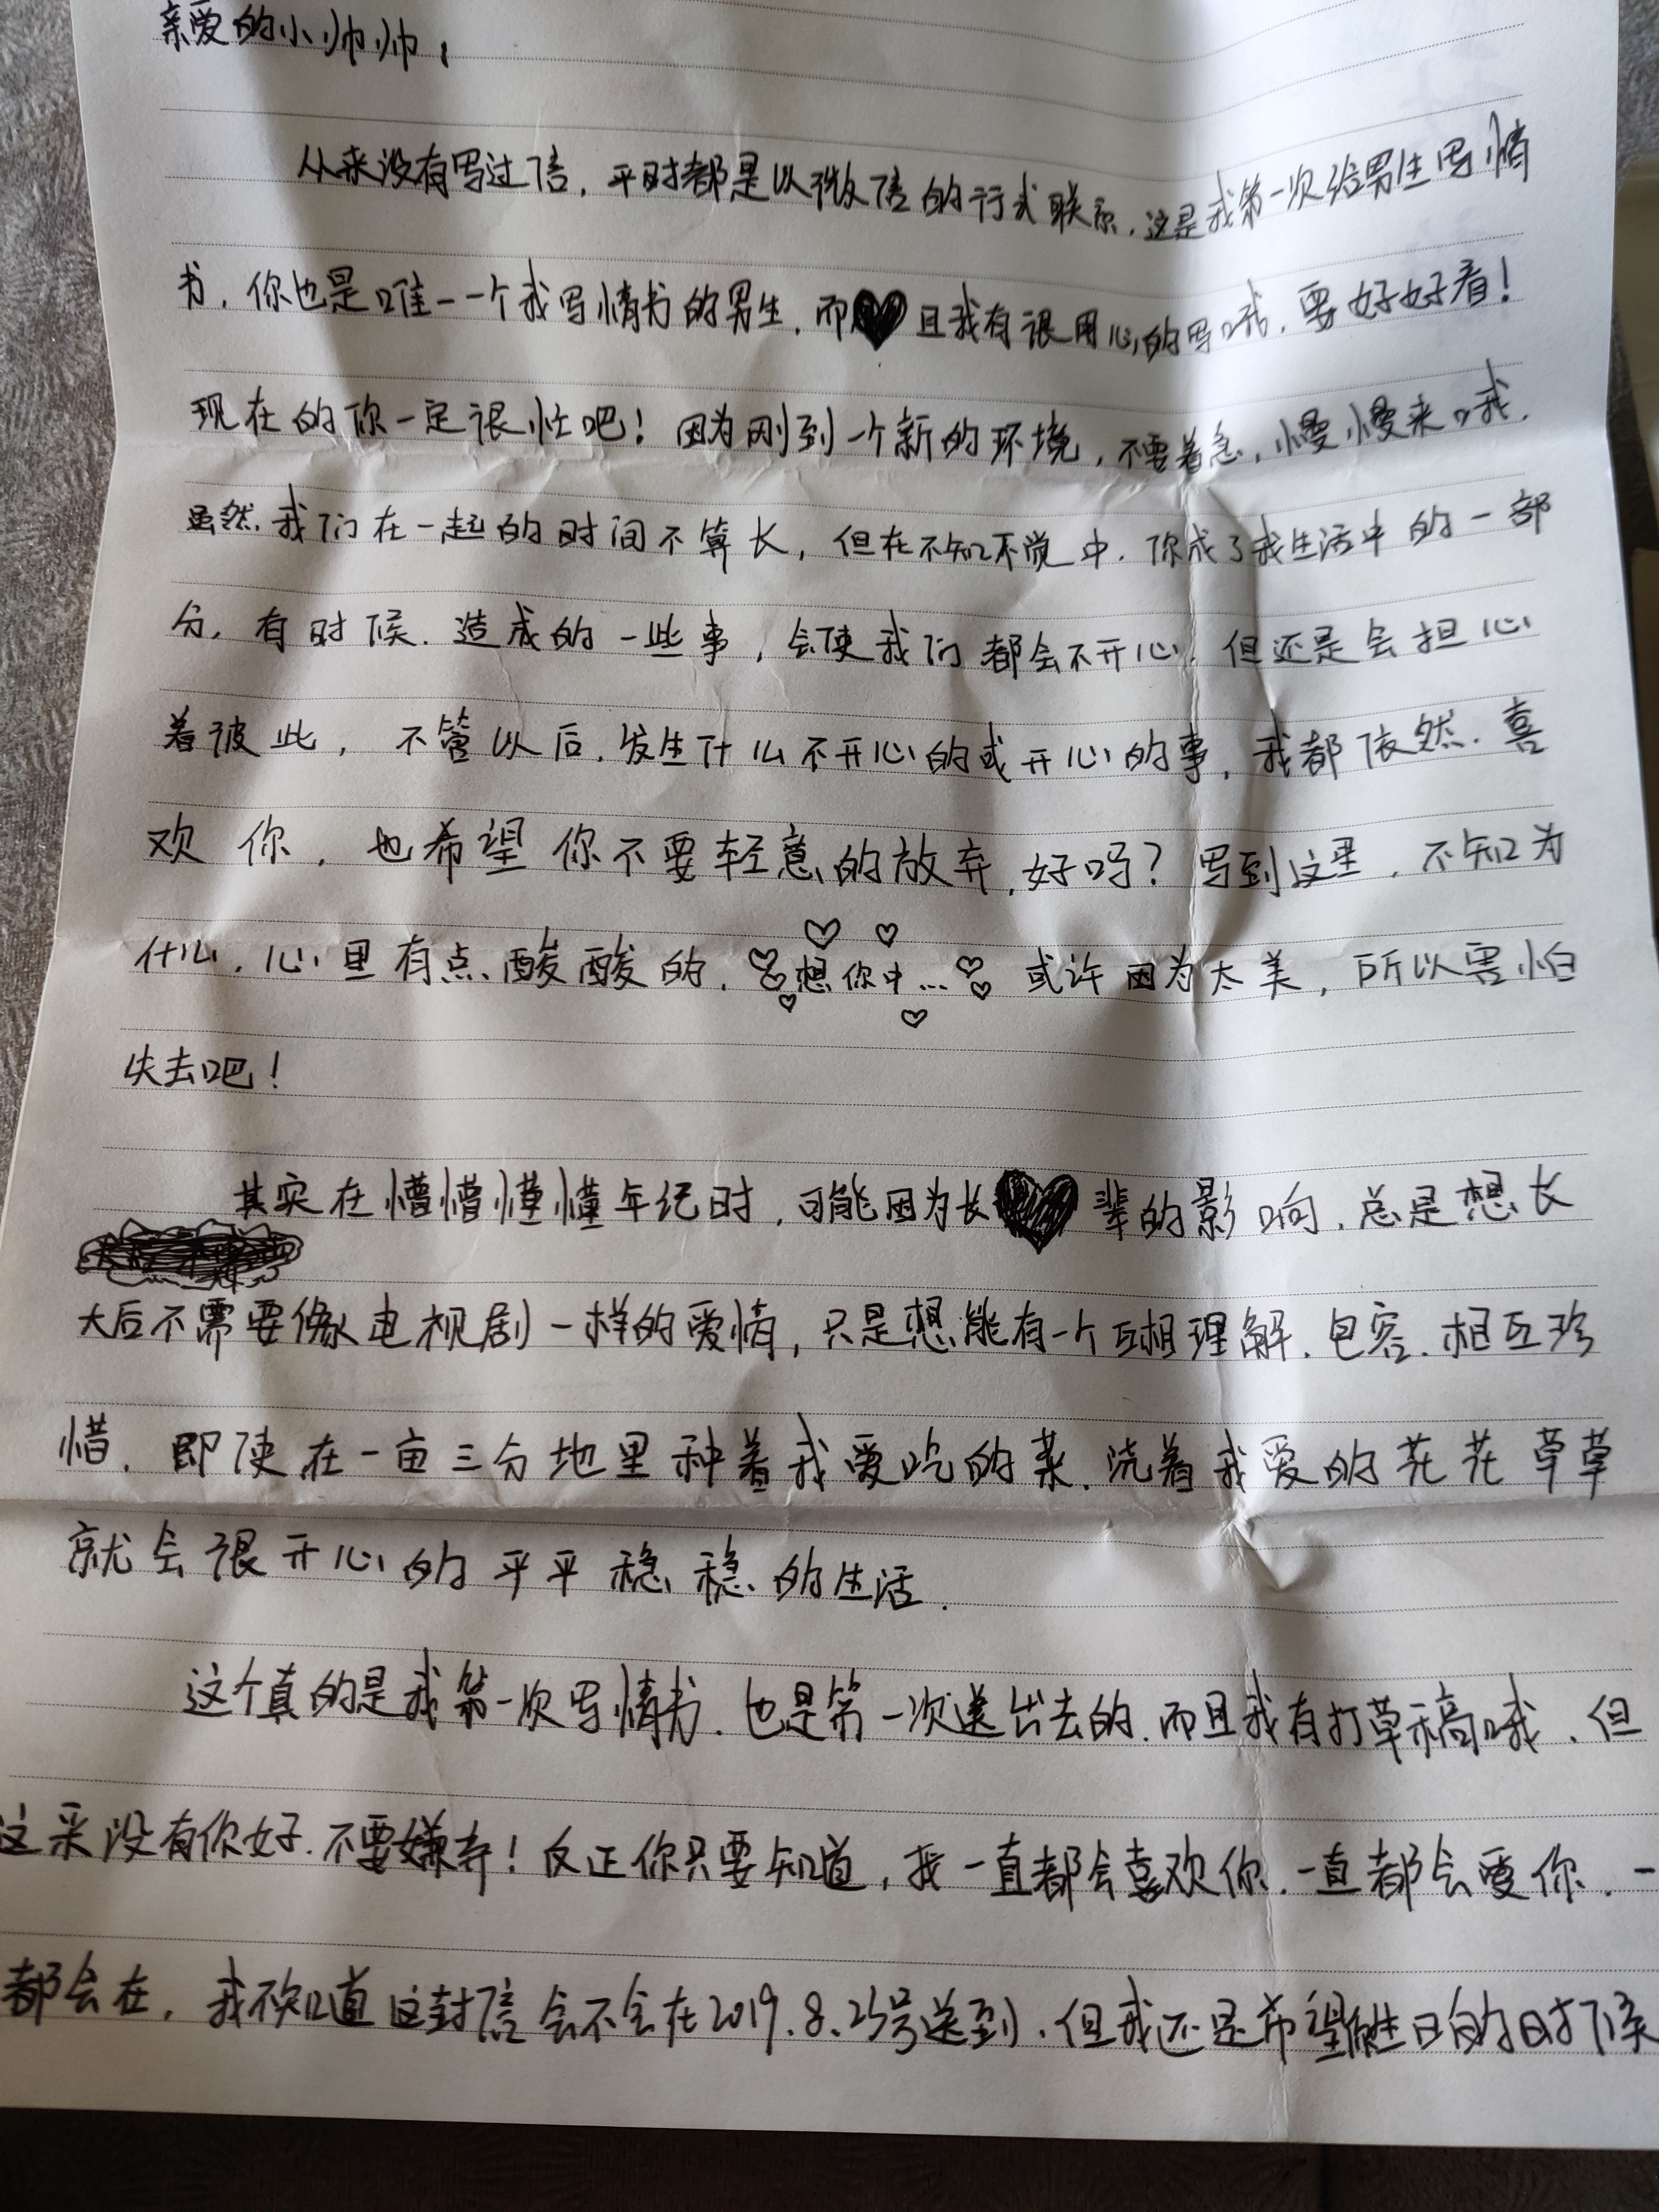 亲爱的小帅帅，
从来没有写过信，平时都是以微信的行式联系，这是我第一次给男生写情
书，你也是唯一一个我写情书的男生，而且我有很用心的写哦，要好好看！
现在的你一定很忙吧！因为刚到一个新的环境，不要着急，慢慢来哦，
虽然，我们在一起的时间不算长，但在不知不觉中，你成了我生活中的一部
分，有时候，造成的一些事，会使我们都会不开心，但还是会担心
着彼此，不管以后，发生什么不开心的或开心的事，我都依然，喜
欢你，也希望你不要轻意的放弃，好吗？写到这里，不知为
什么，心里有点酸酸的，想你中... 或许因为太美，所以害怕
失去吧！
其实在懵懵懂懂年纪时，可能因为长辈的影响，总是想长
大后不需要像电视剧一样的爱情，只是想能有一个互相理解、包容、相互珍
惜，即使在一亩三分地里种着我爱吃的菜，浇着我爱的花花草草
就会很开心的平平稳稳的生活．
这个真的是我第一次写情书，也是第一次送出去的，而且我有打草稿哦，但
这采没有你好，不要嫌弃！反正你只要知道，我一直都会喜欢你，一直都会爱你，一
都会在，我不知道这封信会不会在2019.8.25号送到，但我还是希望你生日的时候